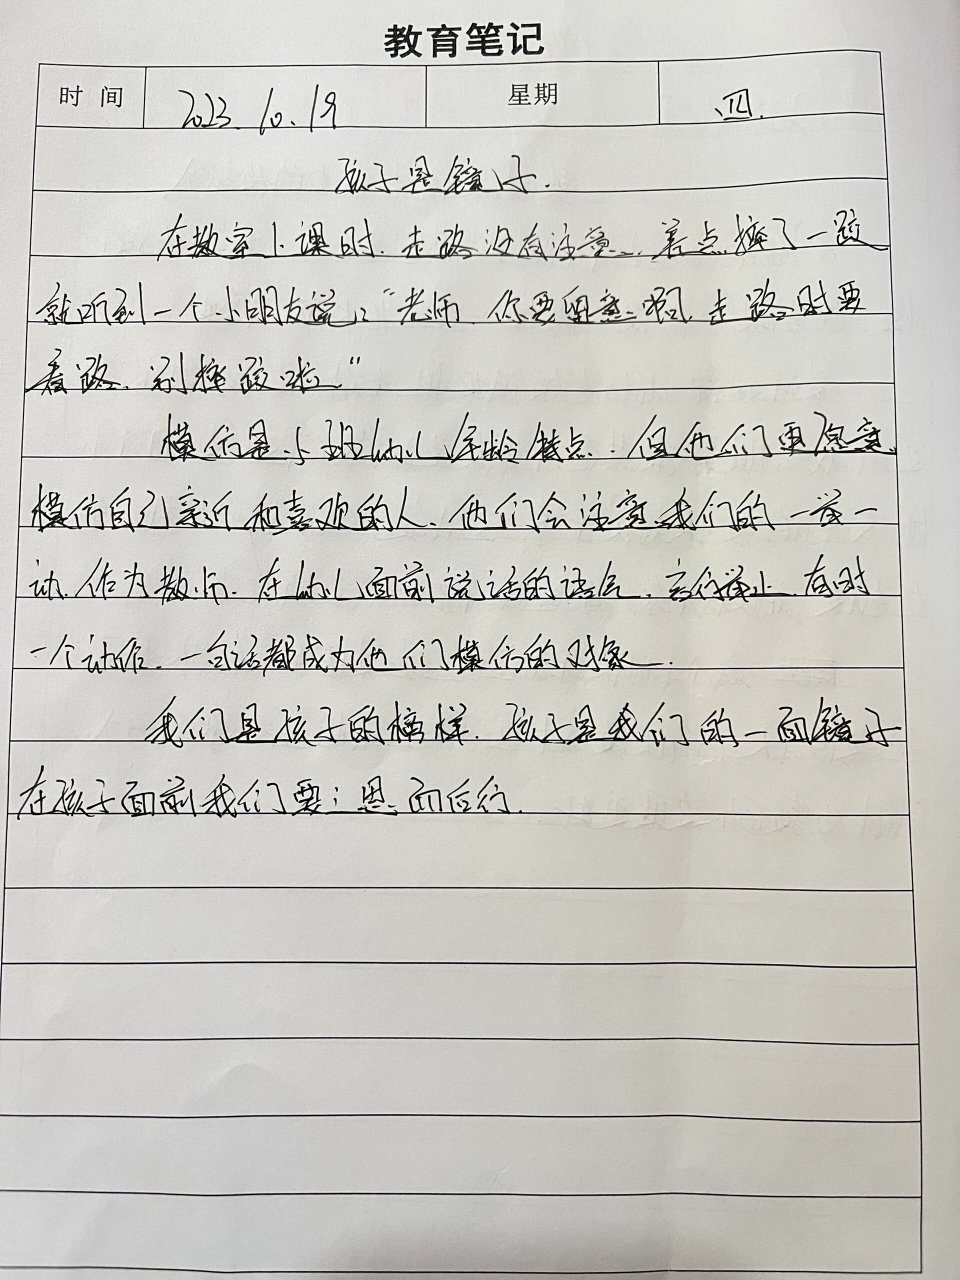 教育笔记
时 间 2023.10.19 星期 四.
孩子是镜子.
在教室上课时.走路没有注意.差点摔了一跤
就听到一个小朋友说:“老师.你要留意啊.走路时要
看路、别摔跤啦”
模仿是小班幼儿年龄特点.但他们更愿意
模仿自己亲近和喜欢的人.他们会注意我们的一举一
动.作为教师.在幼儿面前说话的语气.言行举止.有时
一个动作.一句话都成为他们模仿的对象.
我们是孩子的榜样.孩子是我们的一面镜子
在孩子面前我们要三思而后行.